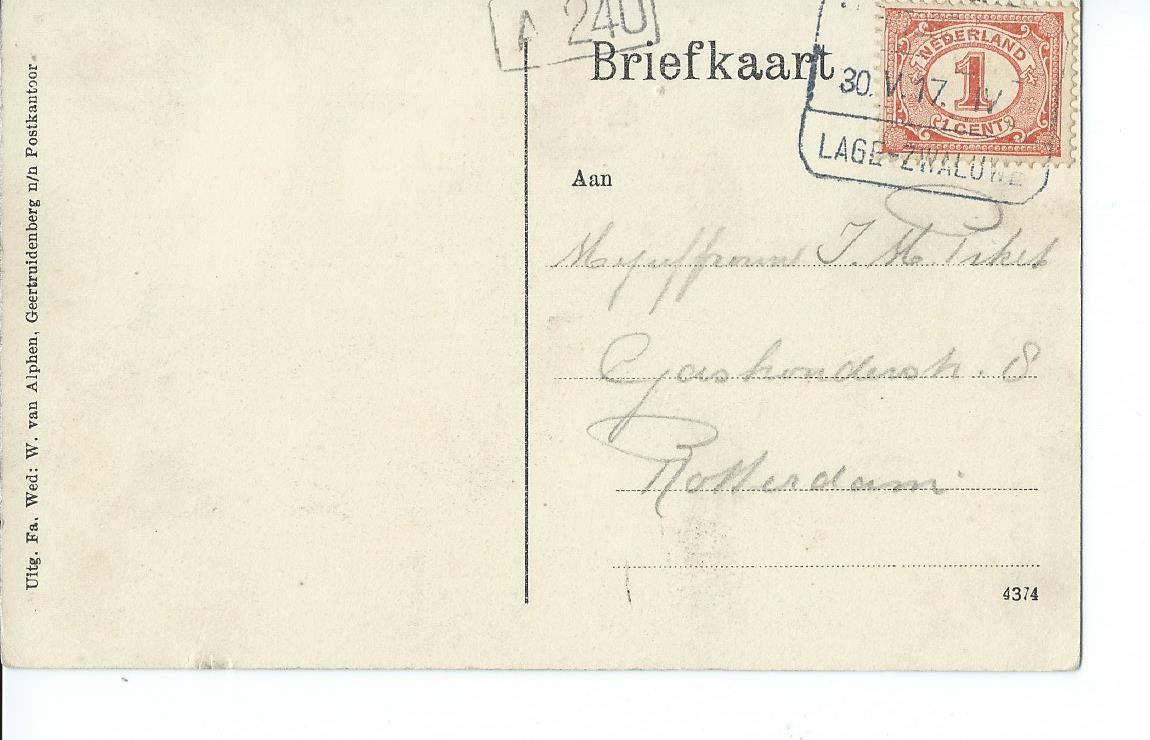 A 240
Briefkaart
NEDERLAND
1
1 CENT
30.V.17. IV
LAGE-ZWALUWE
Aan
Mejuffrouw J. M.
8
Rotterdam
4374
Uitg. Fa. Wed: W. van Alphen, Geertruidenberg n/n Postkantoor